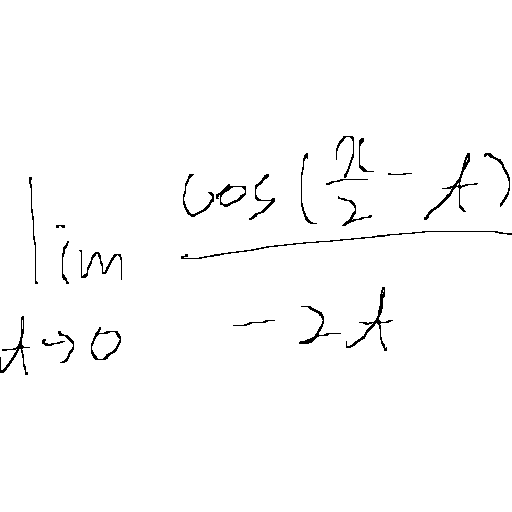 lim t→0 cos(π/2 - t) / -2t